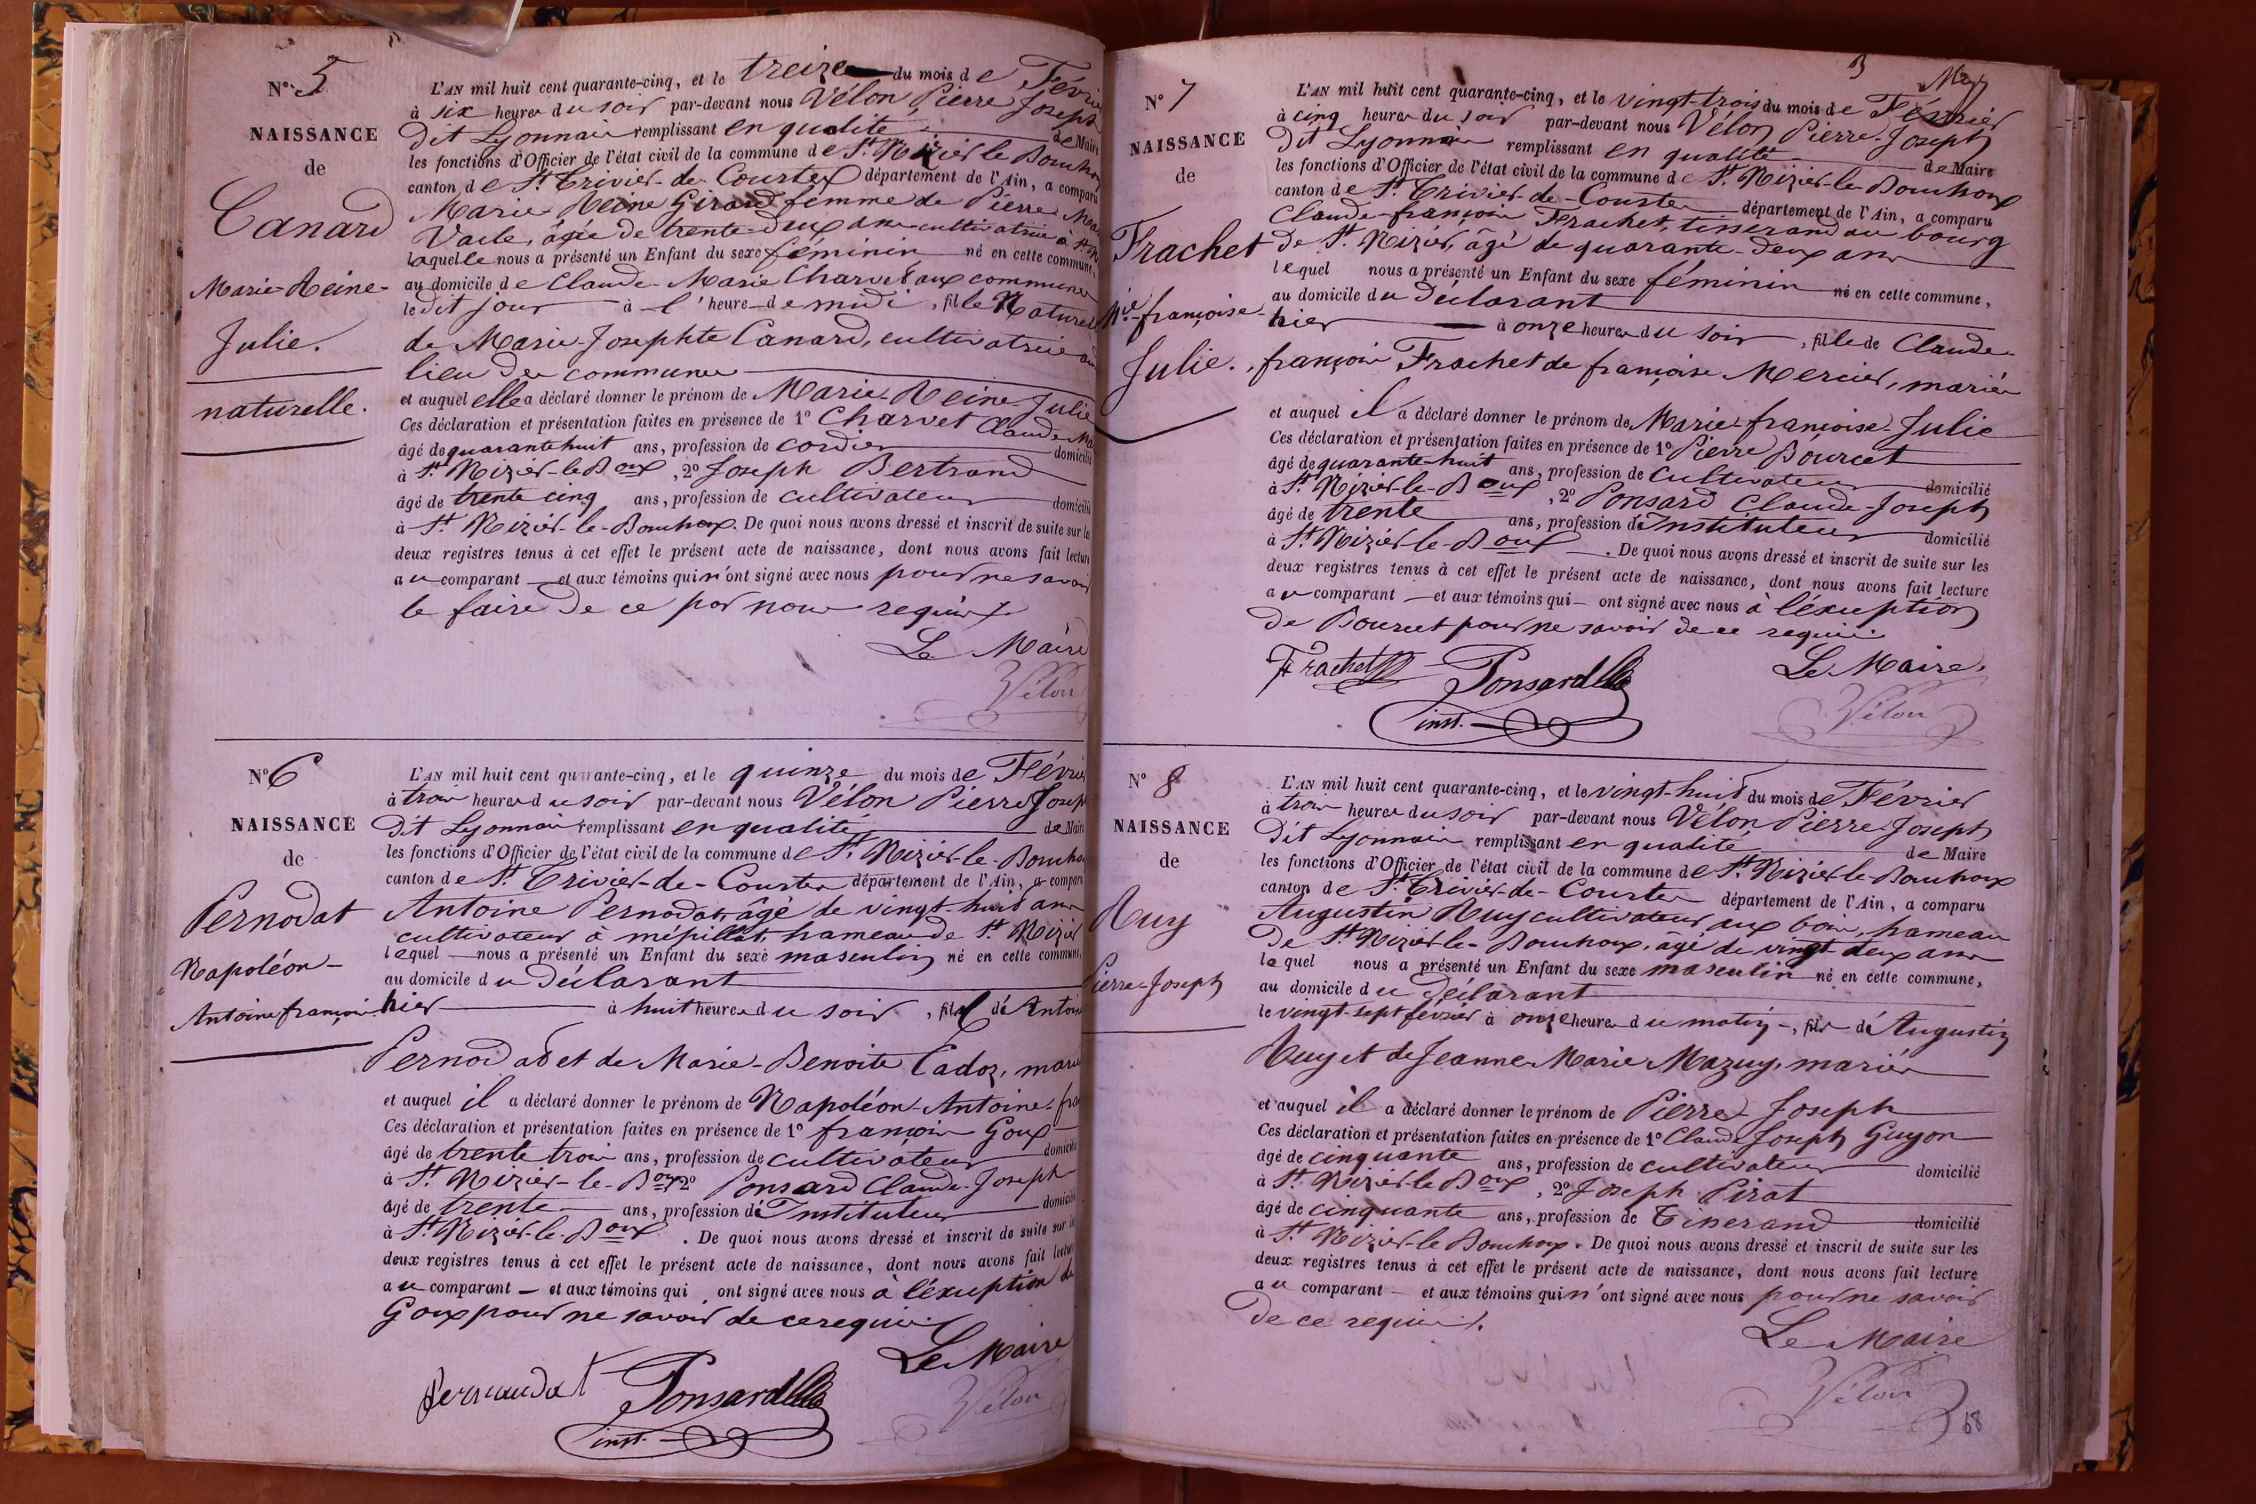 N° 5
NAISSANCE
de
Canard
Marie-Reine-
Julie.
naturelle.
L'AN mil huit cent quarante-cinq, et le treize du mois de Février
à six heures du soir par-devant nous Vélon Pierre Joseph
dit Lyonnais remplissant en qualité de Maire
les fonctions d'Officier de l'état civil de la commune de St Nizier le Bouchoux
canton de St Trivier-de-Courtes département de l'Ain, a comparu
Marie Reine Girard femme de Pierre
âgée de trente-deux ans cultivatrice à St
laquelle nous a présenté un Enfant du sexe féminin né en cette commune,
au domicile de Claude-Marie Charvet aux communes
le dit jour à l'heure de midi, fille Naturelle
de Marie-Josephte Canard, cultivatrice au
lieu des communes
et auquel elle a déclaré donner le prénom de Marie-Reine-Julie
Ces déclaration et présentation faites en présence de 1° Charvet Claude Ma
âgé de quarante huit ans, profession de cordier domicilié
à St Nizier-le-Boux, 2° Joseph Bertrand
âgé de trente cinq ans, profession de cultivateur domicilié
à St Nizier-le-Bouchoux. De quoi nous avons dressé et inscrit de suite sur les
deux registres tenus à cet effet le présent acte de naissance, dont nous avons fait lecture
au comparant et aux témoins qui n'ont signé avec nous pour ne savoir
le faire de ce par nous requis.
Le Maire
Vélon
N° 6
NAISSANCE
de
Pernodat
Napoléon-
Antoine françois
L'AN mil huit cent quarante-cinq, et le quinze du mois de Février
à trois heures du soir par-devant nous Vélon Pierre Joseph
dit Lyonnais remplissant en qualité de Maire
les fonctions d'Officier de l'état civil de la commune de St Nizier-le-Boucho
canton de St Trivier-de-Courtes département de l'Ain, a comparu
Antoine Pernodat, âgé de vingt-huit ans
cultivateur à mépillat, hameau de St Nizier
lequel nous a présenté un Enfant du sexe masculin né en cette commune,
au domicile du Déclarant
hier à huit heures du soir, fils de Antoine
Pernodat et de Marie-Benoite Cadoz, mariés
et auquel il a déclaré donner le prénom de Napoléon-Antoine-fra
Ces déclaration et présentation faites en présence de 1° françois Goux
âgé de trente trois ans, profession de cultivateur domicilié
à St Nizier-le-Boux, 2° Ponsard Claude-Joseph
âgé de trente ans, profession d'Instituteur domicilié
à St Nizier-le-Boux. De quoi nous avons dressé et inscrit de suite sur les
deux registres tenus à cet effet le présent acte de naissance, dont nous avons fait lecture
au comparant et aux témoins qui ont signé avec nous à l'éxception de
Goux pour ne savoir de ce requis.
Le Maire
Pernaudat Ponsard Vélon
inst.
May
N° 7
NAISSANCE
de
Frachet
Mie-françoise-
Julie.
L'AN mil huit cent quarante-cinq, et le vingt-trois du mois de Février
à cinq heures du soir par-devant nous Vélon Pierre-Joseph
dit Lyonnais remplissant en qualité de Maire
les fonctions d'Officier de l'état civil de la commune de St Nizier-le-Bouchoux
canton de St Trivier-de-Courtes département de l'Ain, a comparu
Claude-françois Frachet, tisserand au bourg
de St Nizier, âgé de quarante-deux ans
lequel nous a présenté un Enfant du sexe féminin né en cette commune,
au domicile du Déclarant
hier à onze heures du soir, fille de Claude-
françois Frachet de françoise Mercier, mariés
et auquel il a déclaré donner le prénom de Marie-françoise-Julie
Ces déclaration et présentation faites en présence de 1° Pierre Bourcet
âgé de quarante-huit ans, profession de Cultivateur domicilié
à St Nizier-le-Boux, 2° Ponsard Claude-Joseph
âgé de trente ans, profession d'Instituteur domicilié
à St Nizier-le-Boux. De quoi nous avons dressé et inscrit de suite sur les
deux registres tenus à cet effet le présent acte de naissance, dont nous avons fait lecture
au comparant et aux témoins qui ont signé avec nous à l'éxception
de Bourcet pour ne savoir de ce requis
Le Maire.
Frachet Ponsard Vélon
inst.
N° 8
NAISSANCE
de
Ruy
Pierre-Joseph
L'AN mil huit cent quarante-cinq, et le vingt-huit du mois de Février
à trois heures du soir par-devant nous Vélon Pierre-Joseph
dit Lyonnais remplissant en qualité de Maire
les fonctions d'Officier de l'état civil de la commune de St Nizier-le-Bouchoux
canton de St Trivier-de-Courtes département de l'Ain, a comparu
Augustin Ruy cultivateur aux bois, hameau
de St Nizier-le-Bouchoux, âgé de vingt deux ans
lequel nous a présenté un Enfant du sexe masculin né en cette commune,
au domicile du Déclarant
le vingt-sept février à onze heures du matin, fils de Augustin
Ruy et de Jeanne-Marie Mazuy, mariés
et auquel il a déclaré donner le prénom de Pierre-Joseph
Ces déclaration et présentation faites en présence de 1° Claude Joseph Guyon
âgé de cinquante ans, profession de cultivateur domicilié
à St Nizier-le-Boux, 2° Joseph Pirat
âgé de cinquante ans, profession de Tisserand domicilié
à St Nizier-le-Bouchoux. De quoi nous avons dressé et inscrit de suite sur les
deux registres tenus à cet effet le présent acte de naissance, dont nous avons fait lecture
au comparant et aux témoins qui n'ont signé avec nous pour ne savoir
de ce requis.
Le Maire
Vélon
68